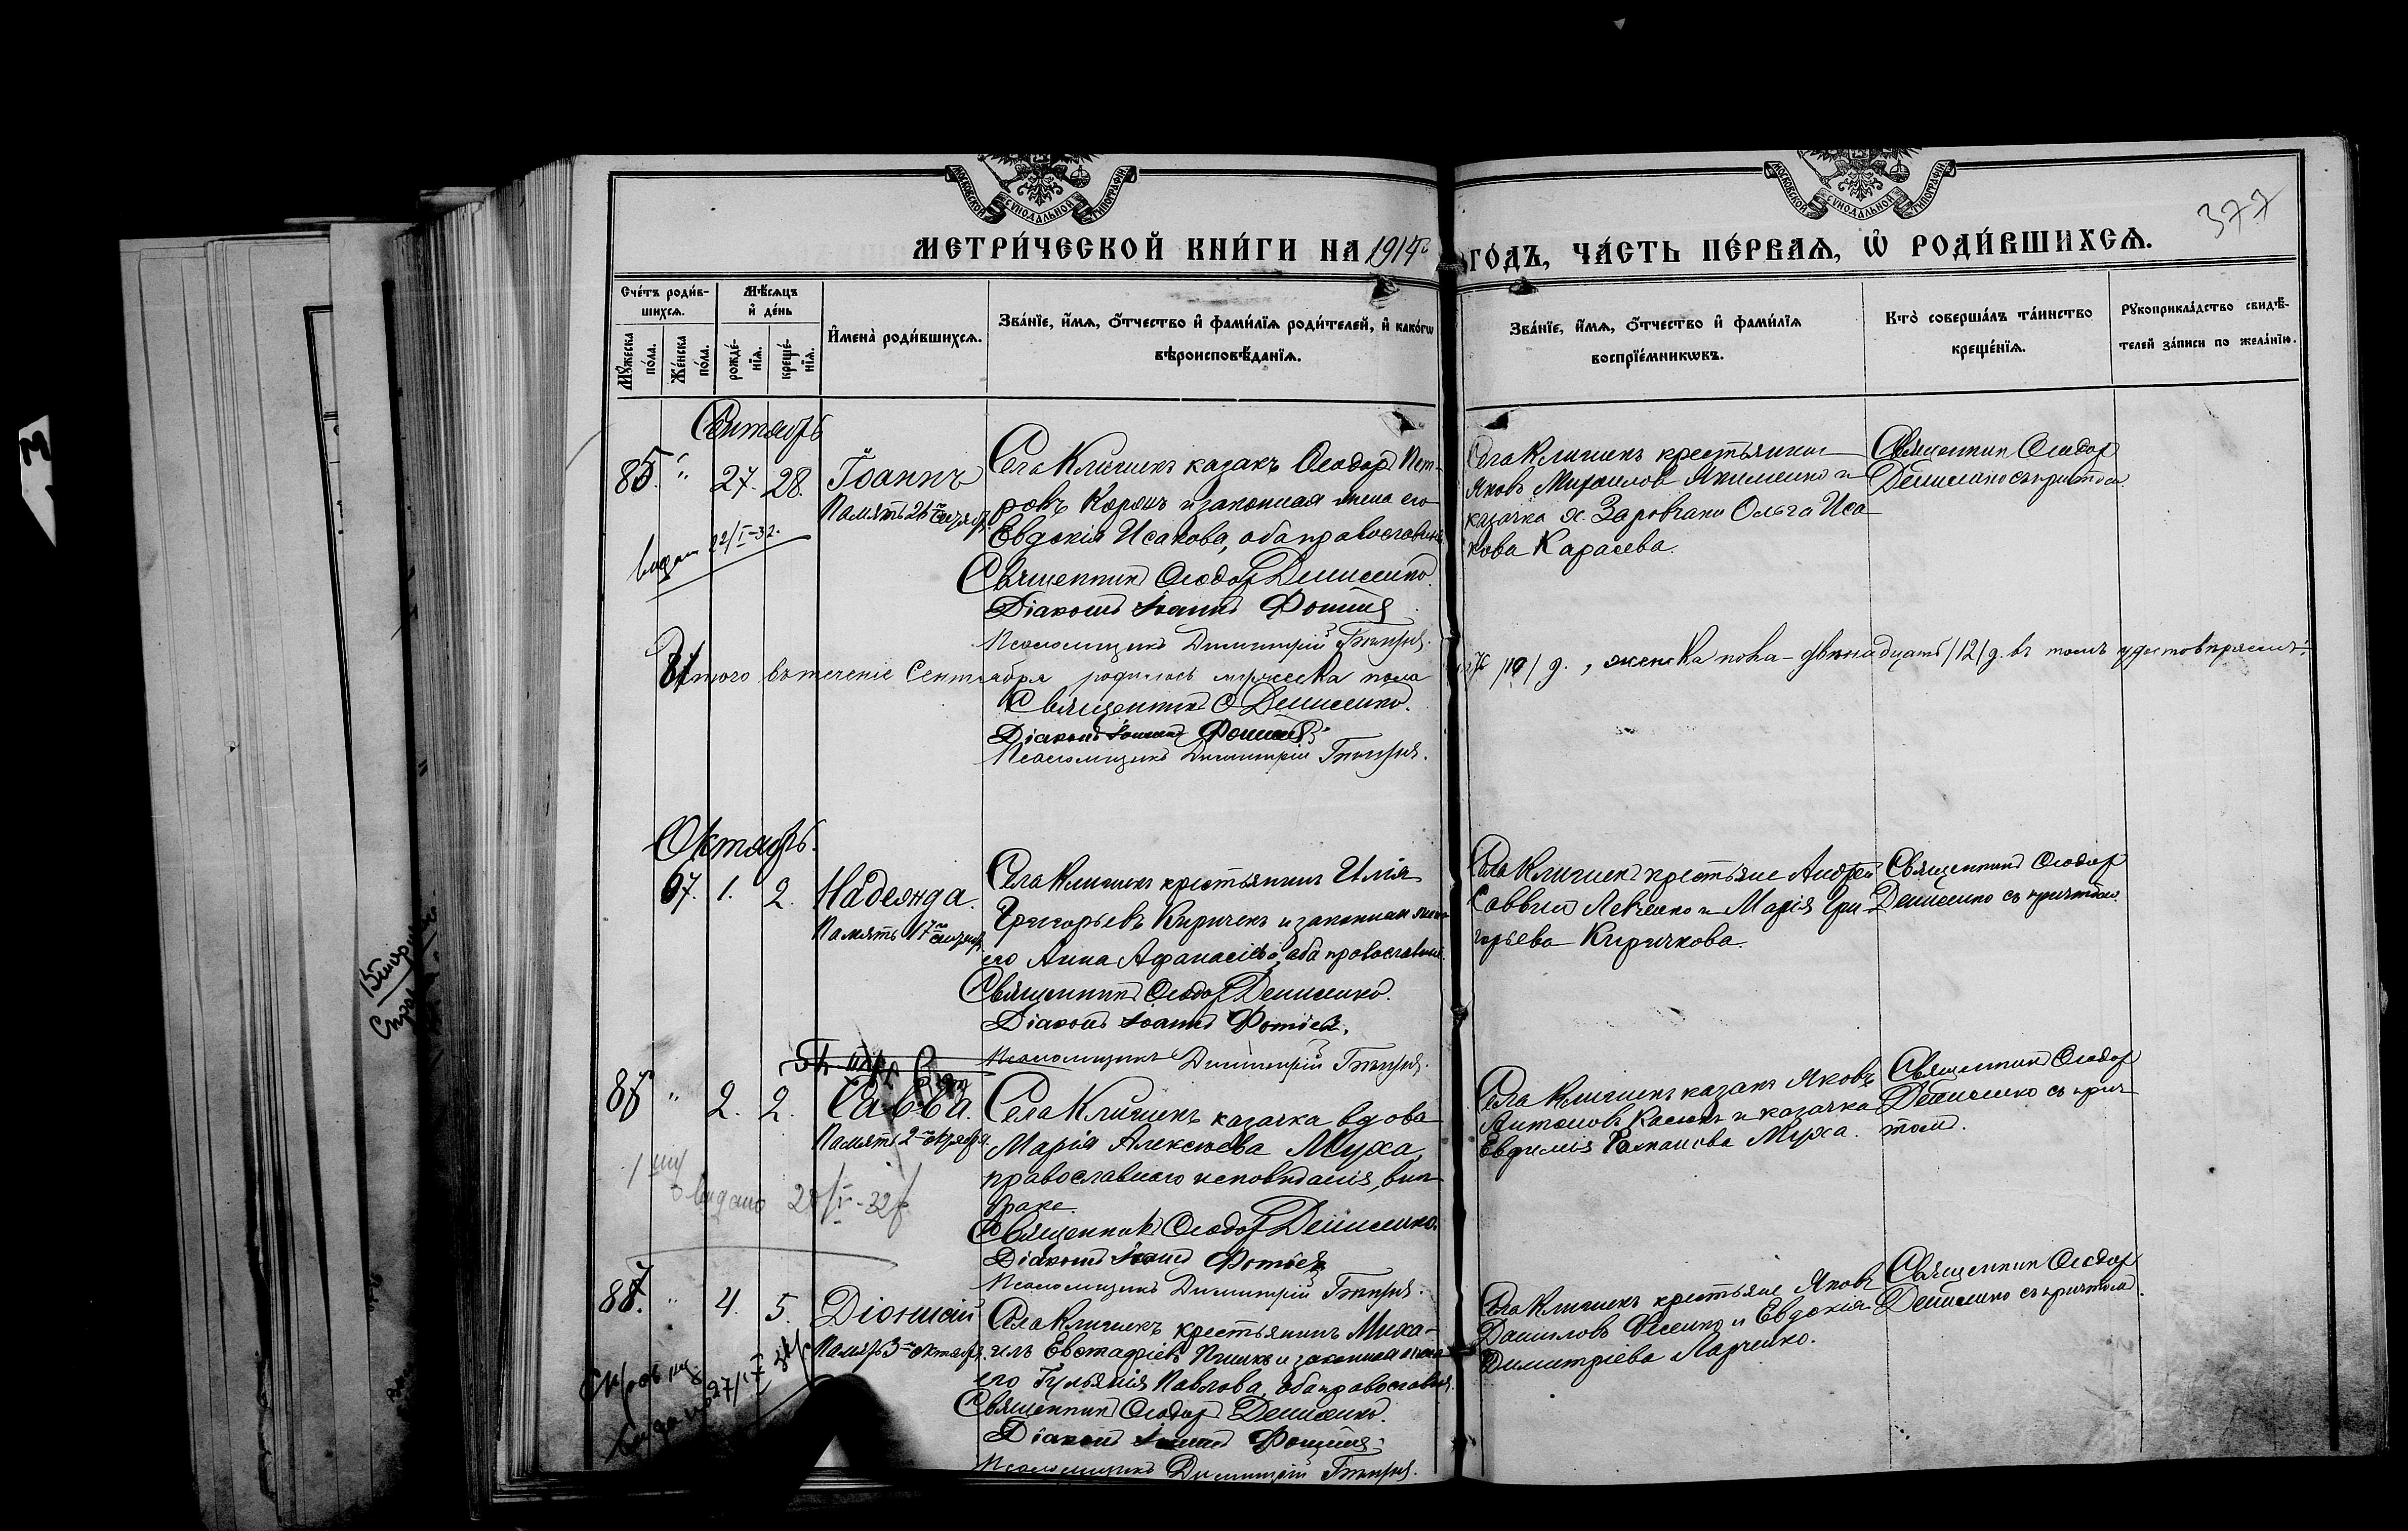 МОСКОВСКОЙ СУНОДАЛЬНОЙ ТИПОГРАФІИ
МОСКОВСКОЙ СУНОДАЛЬНОЙ ТИПОГРАФІИ
377
МЕТРИ́ЧЕСКОЙ КНИ́ГИ НА 1914 ГО́ДЪ, ЧА́СТЬ ПЕ́РВАЯ, Ѽ РОДИ́ВШИХСЯ.
Сче́тъ роди́в-
шихся.
Мѣ́сяцъ
и҆ де́нь
Мꙋ́жеска по́ла.
Же́нска по́ла.
рожде́-
нїя.
креще́-
нїя.
И҆мена̀ роди́вшихся.
Зва́нїе, и҆́мя, ѻ҆́тчество и҆ фами́лїя роди́телей, и҆ како́гѡ
вѣроисповѣ́данїя.
Зва́нїе, и҆́мя, ѻ҆́тчество и҆ фами́лїя
воспрїе́мникѡвъ.
Кто̀ соверша́лъ та́инство
креще́нїя.
Рꙋкоприкла́дство свидѣ́-
телей за́писи по жела́нїю.
Сентябрь
85. " 27. 28. Іоаннъ
Память 26
Села Клишекъ казакъ Ѳеодоръ Пет-
ровъ Корохъ и законная жена его
Евдокія Исакова, оба православные
Священникъ Ѳеодоръ Денисенко.
Діаконъ Іоаннъ Фотіевъ
Псаломщикъ Димитрій
Села Клишекъ крестьянинъ
Яковъ Михаиловъ Якименко и
казачка х. Заровтани Ольга Иса-
кова Карасева.
Священник Ѳеодор
Денисенко съ причтом
22/I-32.
Итого въ теченіе Сентября родилось мужеска пола
/10/ д., женска пола - двѣнадцать /12/ д. въ томъ удостовѣряемъ:
Священникъ Ѳ Денисенко.
Діаконъ Іоаннъ Фотіевъ
Псаломщикъ Димитрій
Октябрь.
67. 1. 2. Надежда.
Память 17
Села Клишекъ крестьянинъ Илія
Григорьевъ Киричекъ и законная жена
его Анна Афанасіева, оба православные.
Священникъ Ѳеодоръ Денисенко.
Діаконъ Іоаннъ Фотіевъ.
Псаломщикъ Димитрій
Села Клишекъ крестьяне Андрей
Саввин Левченко и Марія Гри-
горьева Киричкова.
Священникъ Ѳеодор
Денисенко съ причтом
86 " 2. 2. Савва.
Память 2 октября.
Села Клишекъ казачка вдова
Марія Алексѣева Муха,
православнаго исповѣданія, внѣ
брака.
Священникъ Ѳеодоръ Денисенко.
Діаконъ Іоаннъ Фотіевъ
Псаломщикъ Димитрій
Села Клишекъ казакъ Яковъ
Антоновъ Касюкъ и казачка
Евфимія Романова Муха.
Священникъ Ѳеодор
Денисенко съ прич-
том.
видано 28/I-32
87. " 4. 5. Діонисій
Память 3 октября.
Села Клишекъ крестьянинъ Миха-
илъ Евстафіевъ и законная жена
его Гульянія Павлова, оба православные.
Священникъ Ѳеодоръ Денисенко.
Діаконъ Іоаннъ Фотіевъ
Псаломщикъ Димитрій
Села Клишекъ крестьяне Яковъ
Даниловъ и Евдокія
Димитріева Ларченко.
Священник Ѳеодор
Денисенко съ причтом